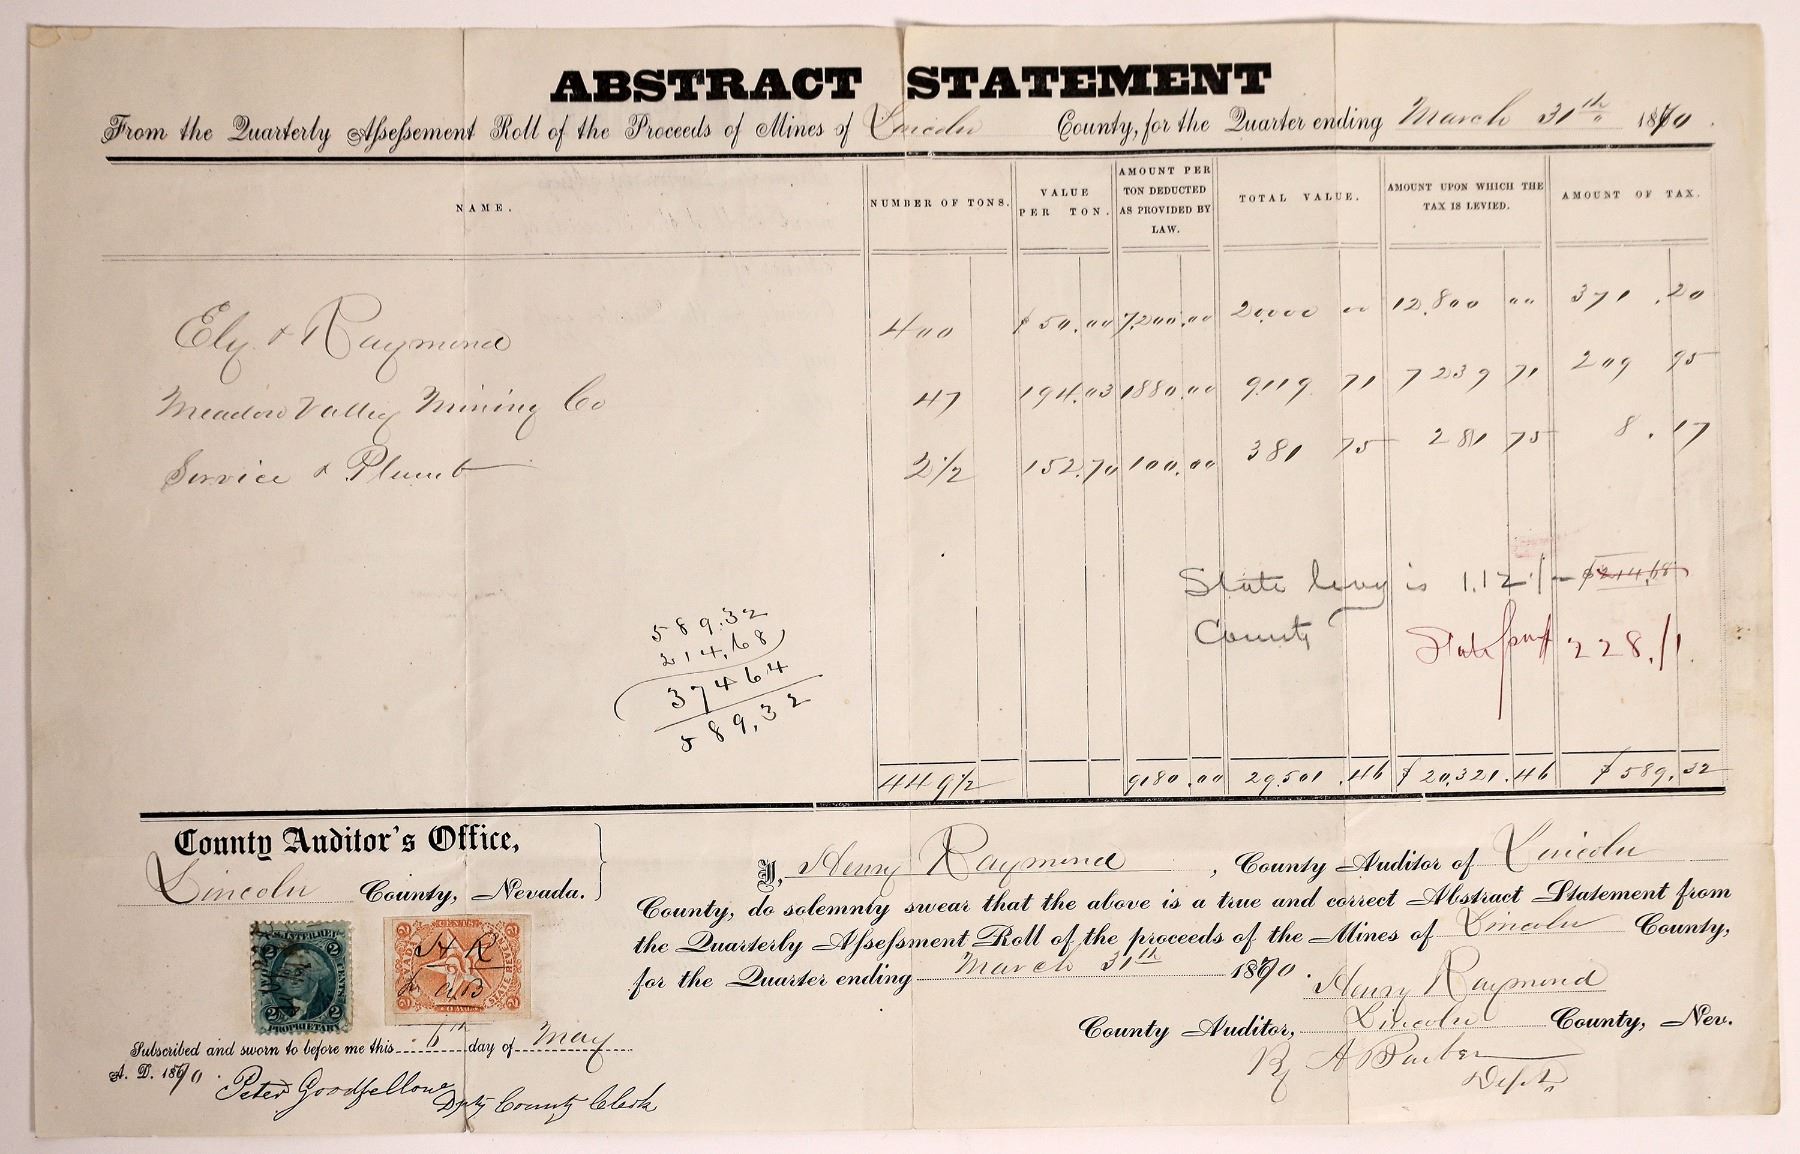 ABSTRACT STATEMENT
From the Quarterly Assessment Roll of the Proceeds of Mines of Lincoln County, for the Quarter ending March 31th 1870.
NAME. NUMBER OF TONS. VALUE PER TON. AMOUNT PER TON DEDUCTED AS PROVIDED BY LAW. TOTAL VALUE. AMOUNT UPON WHICH THE TAX IS LEVIED. AMOUNT OF TAX.
Ely & Raymond 400 $50.00 7,200.00 20,000 00 12,800 00 371.20
Meadow Valley Mining Co 47 194.03 1880.00 9119 71 7239 71 209 95
Service & Plumb 2 1/2 152.70 100.00 381 75 281 75 8.17
State levy is 1.12 $214.68
County
State 228.11
589.32
214.68
374 64
589.32
449 1/2 9180.00 29,501.46 $20,321.46 $589.32
County Auditor's Office,
Lincoln County, Nevada.
I, Henry Raymond, County Auditor of Lincoln
County, do solemnly swear that the above is a true and correct Abstract Statement from
the Quarterly Assessment Roll of the proceeds of the Mines of Lincoln County,
for the Quarter ending March 31th 1870.
Henry Raymond
County Auditor, Lincoln County, Nev.
By A Barber
Dept.
U.S. INTER. REV.
2 2
CENTS
2 2
PROPRIETARY
H R
A B
Subscribed and sworn to before me this 6th day of May
A. D. 1870.
Peter Goodfellow
Dpty County Clerk